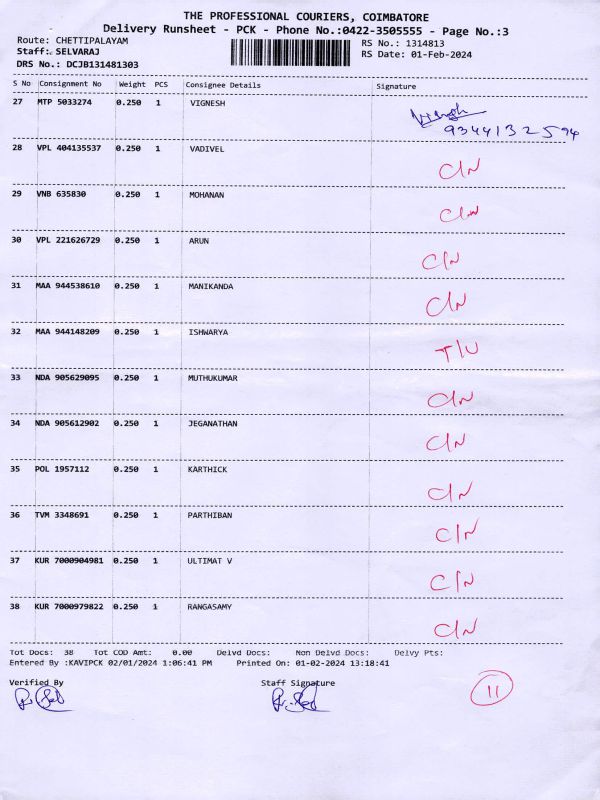 THE PROFESSIONAL COURIERS, COIMBATORE
Delivery Runsheet - PCK - Phone No.:0422-3505555 - Page No.:3
Route: CHETTIPALAYAM RS No.: 1314813
Staff: SELVARAJ RS Date: 01-Feb-2024
DRS No.: DCJB131481303
S No Consignment No Weight PCS Consignee Details Signature
27 MTP 5033274 0.250 1 VIGNESH
9344132594
28 VPL 404135537 0.250 1 VADIVEL C/N
29 VNB 635830 0.250 1 MOHANAN C/N
30 VPL 221626729 0.250 1 ARUN C/N
31 MAA 944538610 0.250 1 MANIKANDA C/N
32 MAA 944148209 0.250 1 ISHWARYA T/U
33 NDA 905629095 0.250 1 MUTHUKUMAR C/N
34 NDA 905612902 0.250 1 JEGANATHAN C/N
35 POL 1957112 0.250 1 KARTHICK C/N
36 TVM 3348691 0.250 1 PARTHIBAN C/N
37 KUR 7000904981 0.250 1 ULTIMAT V C/N
38 KUR 7000979822 0.250 1 RANGASAMY C/N
Tot Docs: 38 Tot COD Amt: 0.00 Delvd Docs: Non Delvd Docs: Delvy Pts:
Entered By :KAVIPCK 02/01/2024 1:06:41 PM Printed On: 01-02-2024 13:18:41
Verified By Staff Signature
11